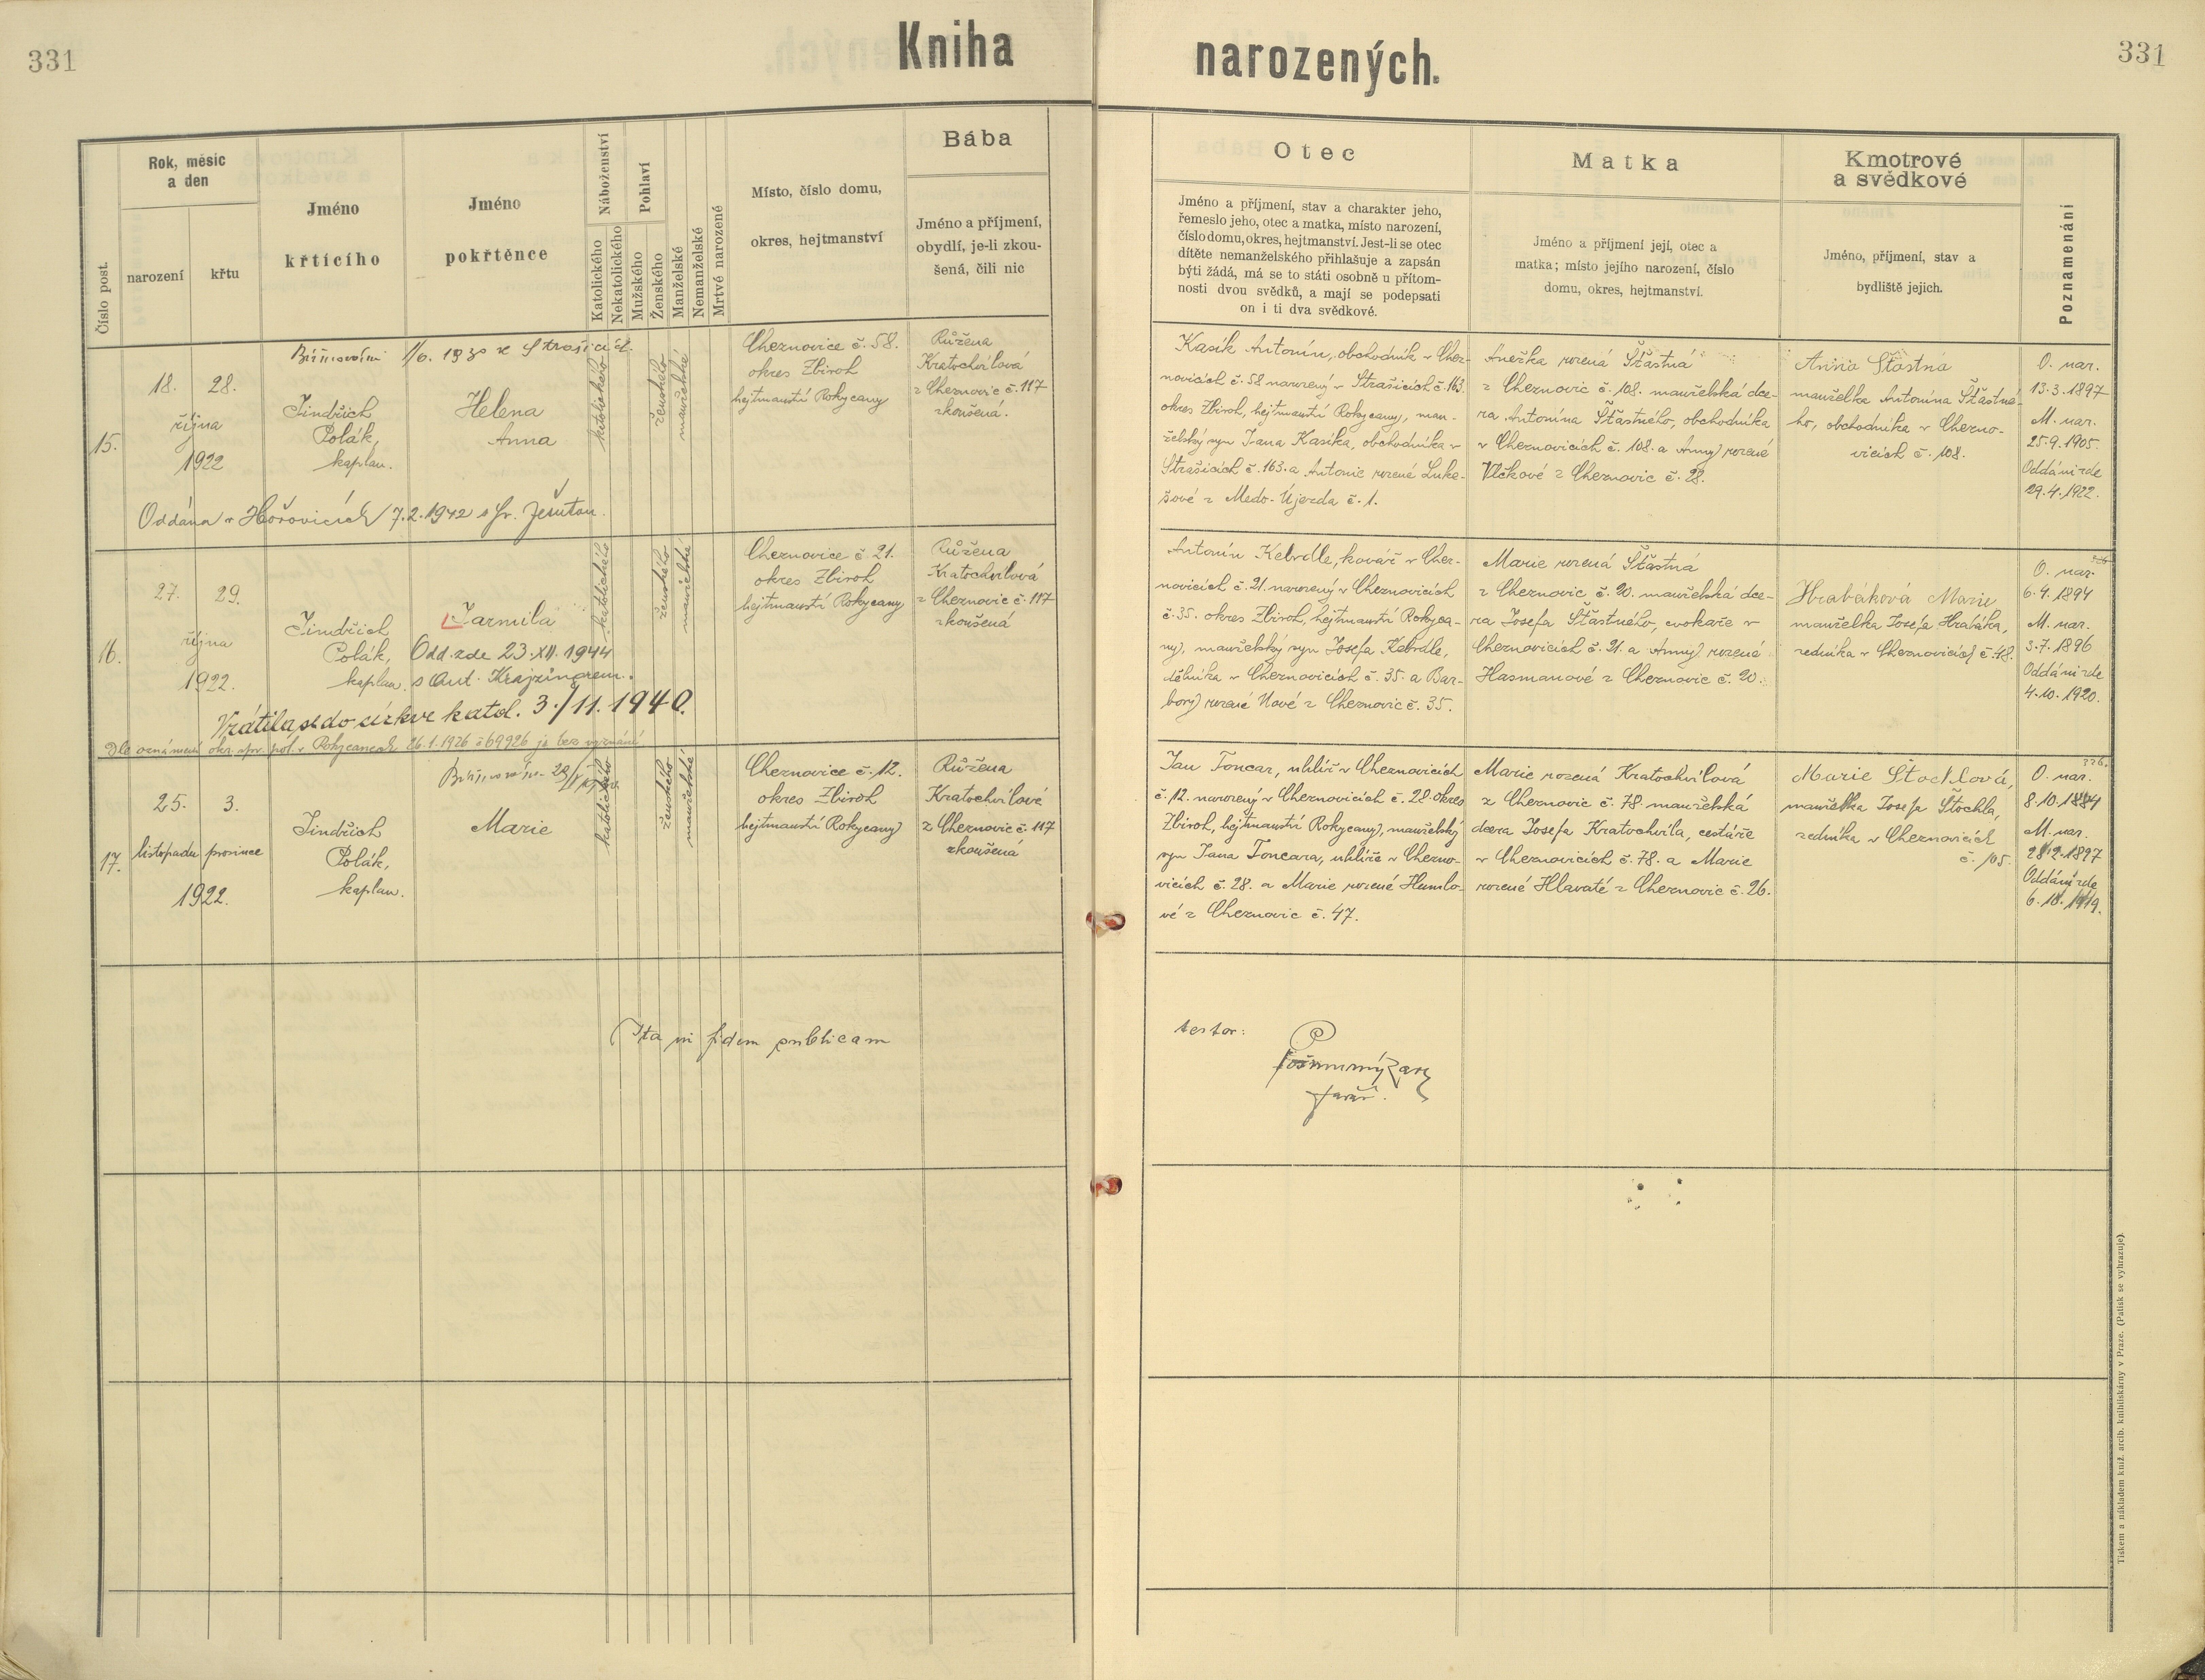 331
Kniha
narozených.
331
Číslo post.
Rok, měsíc
a den
narození
křtu
Jméno
křtícího
Jméno
pokřtěnce
Náboženství
Katolického
Nekatolického
Pohlaví
Mužského
Ženského
Manželské
Nemanželské
Mrtvě narozené
Místo, číslo domu,
okres, hejtmanství
Bába
Jméno a příjmení,
obydlí, je-li zkou-
šená, čili nic
Otec
Jméno a příjmení, stav a charakter jeho,
řemeslo jeho, otec a matka, místo narození,
číslo domu, okres, hejtmanství. Jest-li se otec
dítěte nemanželského přihlašuje a zapsán
býti žádá, má se to státi osobně u přítom-
nosti dvou svědků, a mají se podepsati
on i ti dva svědkové.
Matka
Jméno a příjmení její, otec a
matka; místo jejího narození, číslo
domu, okres, hejtmanství.
Kmotrové
a svědkové
Jméno, příjmení, stav a
bydliště jejich.
Poznamenání
15.
18.
října
1922
28.
Biřmování 1/6. 1930 ve Strašicích.
Jindřich
Polák,
kaplan.
Helena
Anna
katolického
ženského
manželské
Cheznovice č. 58.
okres Zbiroh
hejtmanství Rokycany
Růžena
Kratochvílová
z Cheznovic č. 117
zkoušená.
Oddána v Hořovicích 7.2.1942 s Fr.
Kasík Antonín, obchodník v Chez-
novicích č. 58 narozený v Strašicích č. 163.
okres Zbiroh, hejtmanství Rokycany, man-
želský syn Jana Kasíka, obchodníka v
Strašicích č. 163. a Antonie rozené Luke-
šové z Medo-Újezda č. 1.
Anežka rozená Šťastná
z Cheznovic č. 108. manželská dce-
ra Antonína Šťastného, obchodníka
v Cheznovicích č. 108. a Anny rozené
Vlčkové z Cheznovic č. 28.
Anna Šťastná
manželka Antonína Šťastné-
ho, obchodníka v Chezno-
vicích č. 108.
O. nar.
13.3.1897
M. nar.
25.9.1905.
Oddáni zde
29.4.1922.
16.
27.
října
1922.
29.
Jindřich
Polák,
kaplan.
Jarmila
Odd. zde 23.XII.1944
s Ant. Krajzingrem.
Vrátila se do církve katol. 3./11.1940.
Dle oznámení okr. spr. pol. v Rokycanech 26.1.1926 č 69926 je bez vyznání
katolického
ženského
manželské
Cheznovice č. 21.
okres Zbiroh
hejtmanství Rokycany
Růžena
Kratochvílová
z Cheznovic č. 117
zkoušená
Antonín Kebrdle, kovář v Chez-
novicích č. 21. narozený v Cheznovicích
č. 35. okres Zbiroh, hejtmanství Rokyca-
ny, manželský syn Josefa Kebrdle,
dělníka v Cheznovicích č. 35. a Bar-
bory rozené Nové z Cheznovic č. 35.
Marie rozená Šťastná
z Cheznovic č. 20. manželská dce-
ra Josefa Šťastného, cvokaře v
Cheznovicích č. 21. a Anny rozené
Hasmanové z Cheznovic č. 20.
Hrabáková Marie
manželka Josefa Hrabáka,
zedníka v Cheznovicích č. 48.
O. nar.
6.4.1894
M. nar.
3.7.1896
Oddáni zde
4.10.1920.
17.
25.
listopadu
1922.
3.
prosince
Jindřich
Polák,
kaplan.
Marie
katolického
ženského
manželské
Cheznovice č. 12.
okres Zbiroh
hejtmanství Rokycany
Růžena
Kratochvílové
z Cheznovic č. 117
zkoušená
Jan Toncar, uhlíř v Cheznovicích
č. 12. narozený v Cheznovicích č. 28. okres
Zbiroh, hejtmanství Rokycany, manželský
syn Jana Toncara, uhlíře v Chezno-
vicích č. 28. a Marie rozené Humlo-
vé z Cheznovic č. 47.
Marie rozená Kratochvílová
z Cheznovic č. 78. manželská
dcera Josefa Kratochvíla, cestáře
v Cheznovicích č. 78. a Marie
rozené Hlavaté z Cheznovic č. 26.
Marie Štochlová,
manželka Josefa Štochla,
zedníka v Cheznovicích
č. 105.
O. nar.
8.10.1884
M. nar.
1897
Oddáni zde
6. 1919.
Ita in fidem publicam
testor:
farář.
Tiskem a nákladem kníž. arcib. knihtiskárny v Praze. (Patisk se vyhrazuje).